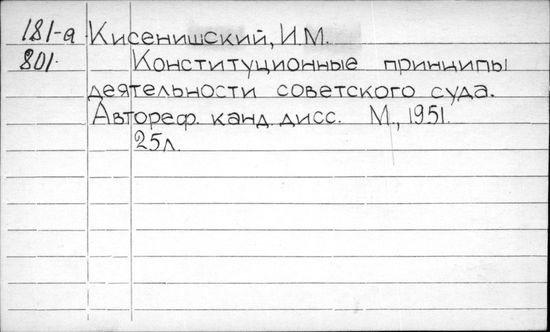 181-а Кисенишский, И.М.
801. Конституционные принципы
деятельности советского суда.
Автореф. канд. дисс. М., 1951.
25л.